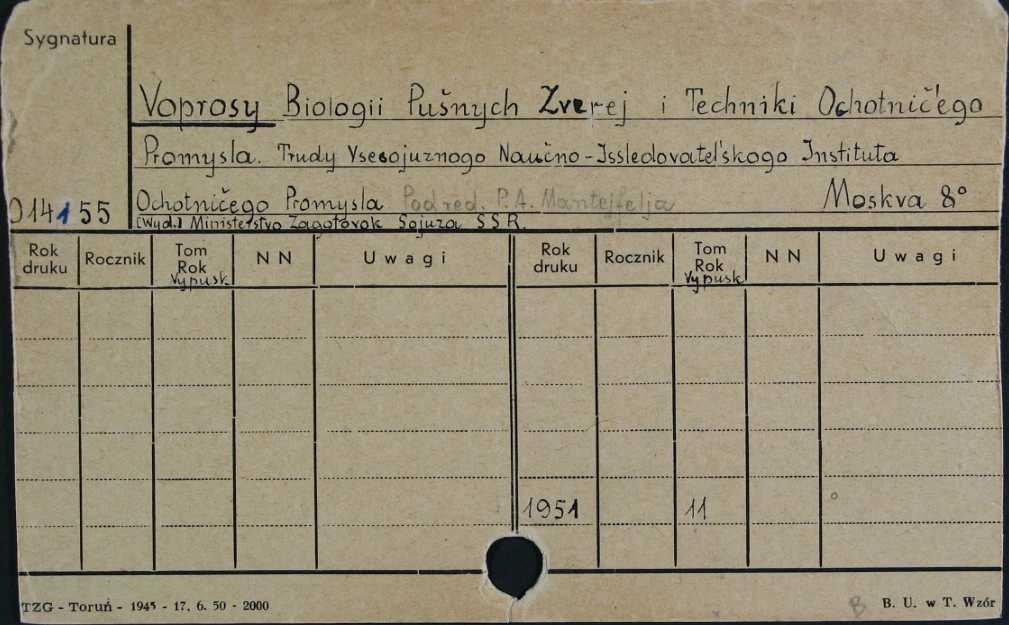 Sygnatura
Voprosy Biologii Pušnych Zverej i Techniki Ochotnič'ego
Promysla. Trudy Vsesojuznogo Naučno-Issledovatel'skogo Instituta
Ochotničego Promysla Pod red. P.A. Mantejfelja Moskva 8°
014155 [Wyd.] Ministerstvo Zagotovok Sojuza SSR.
Rok druku Rocznik Tom Rok Vypusk NN Uwagi Rok druku Rocznik Tom Rok Vypusk NN Uwagi
1951 11
TZG - Toruń - 1945 - 17. 6. 50 - 2000 B B. U. w T. Wzór